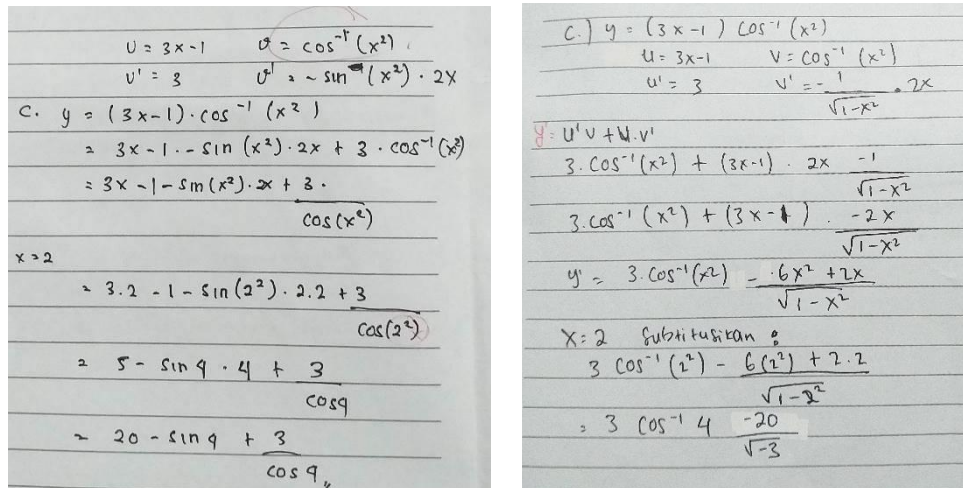 U = 3x-1 v = cos⁻¹ (x²)
U' = 3 v' = - sin (x²) · 2x
C. y = (3x-1) · cos⁻¹ (x²)
= 3x - 1 · - sin (x²) · 2x + 3 · cos⁻¹ (x²)
= 3x - 1 - sin (x²) · 2x + 3 ·
cos (x²)
x = 2
= 3.2 - 1 - sin (2²) · 2.2 + 3
cos (2²)
= 5 - sin 4 · 4 + 3
cos 4
= 20 - sin 4 + 3
cos 4 ,,
C.) y = (3x-1) cos⁻¹ (x²)
u = 3x-1 v = cos⁻¹ (x²)
u' = 3 v' = - 1 . 2x
√1-x²
y' = u'v + u.v'
3. cos⁻¹ (x²) + (3x-1) . 2x -1
√1-x²
3. cos⁻¹ (x²) + (3x-1) . -2x
√1-x²
y' = 3. cos⁻¹ (x²) - 6x² + 2x
√1-x²
x = 2 Subtitusikan :
3 cos⁻¹ (2²) - 6(2²) + 2.2
√1-2²
= 3 cos⁻¹ 4 -20
√-3